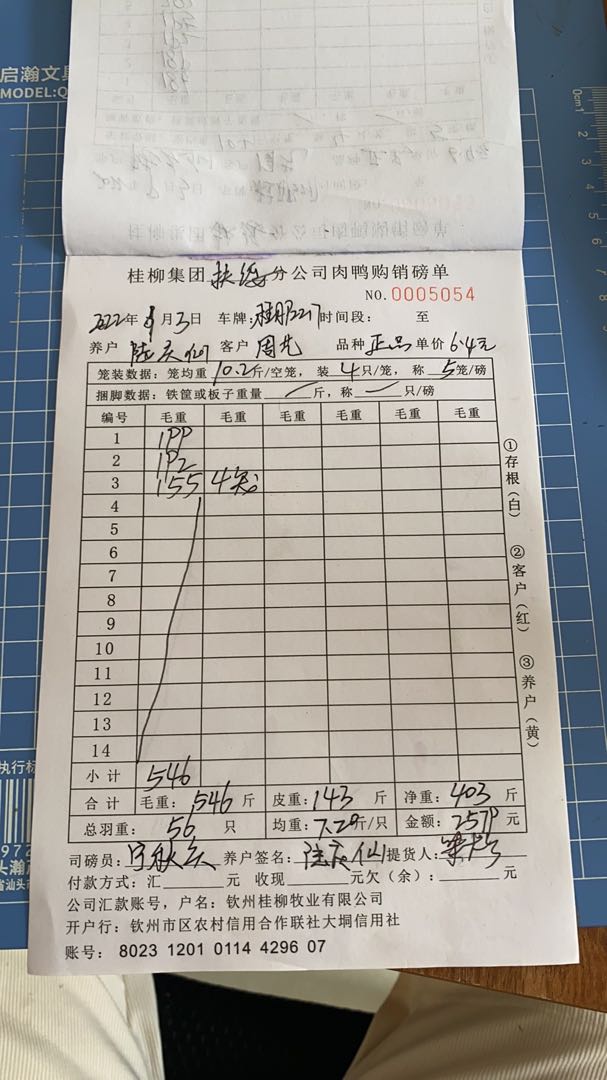 启瀚文具
MODEL:Q
0cm1 2 3 4 5
桂柳集团扶绥分公司肉鸭购销磅单
NO.0005054
2022年9月3日 车牌: 时间段: 至
养户 陆庆仙 客户 周先 品种 正品 单价 6.4元
笼装数据: 笼均重10.2斤/空笼, 装4只/笼, 称5笼/磅
捆脚数据: 铁筐或板子重量 / 斤, 称 / 只/磅
编号 毛重 毛重 毛重 毛重 毛重 毛重
1 199
2 192
3 155 4笼
4
5
6
7
8
9
10
11
12
13
14
小计 546
合计 毛重: 546 斤 皮重: 143 斤 净重: 403 斤
总羽重: 56 只 均重: 7.20斤/只 金额: 2579 元
司磅员: 养户签名: 陆庆仙 提货人:
付款方式: 汇 元 收现 元 欠(余): 元
公司汇款账号, 户名: 钦州桂柳牧业有限公司
开户行: 钦州市区农村信用合作联社大垌信用社
账号: 8023 1201 0114 4296 07
①存根(白)
②客户(红)
③养户(黄)
执行标